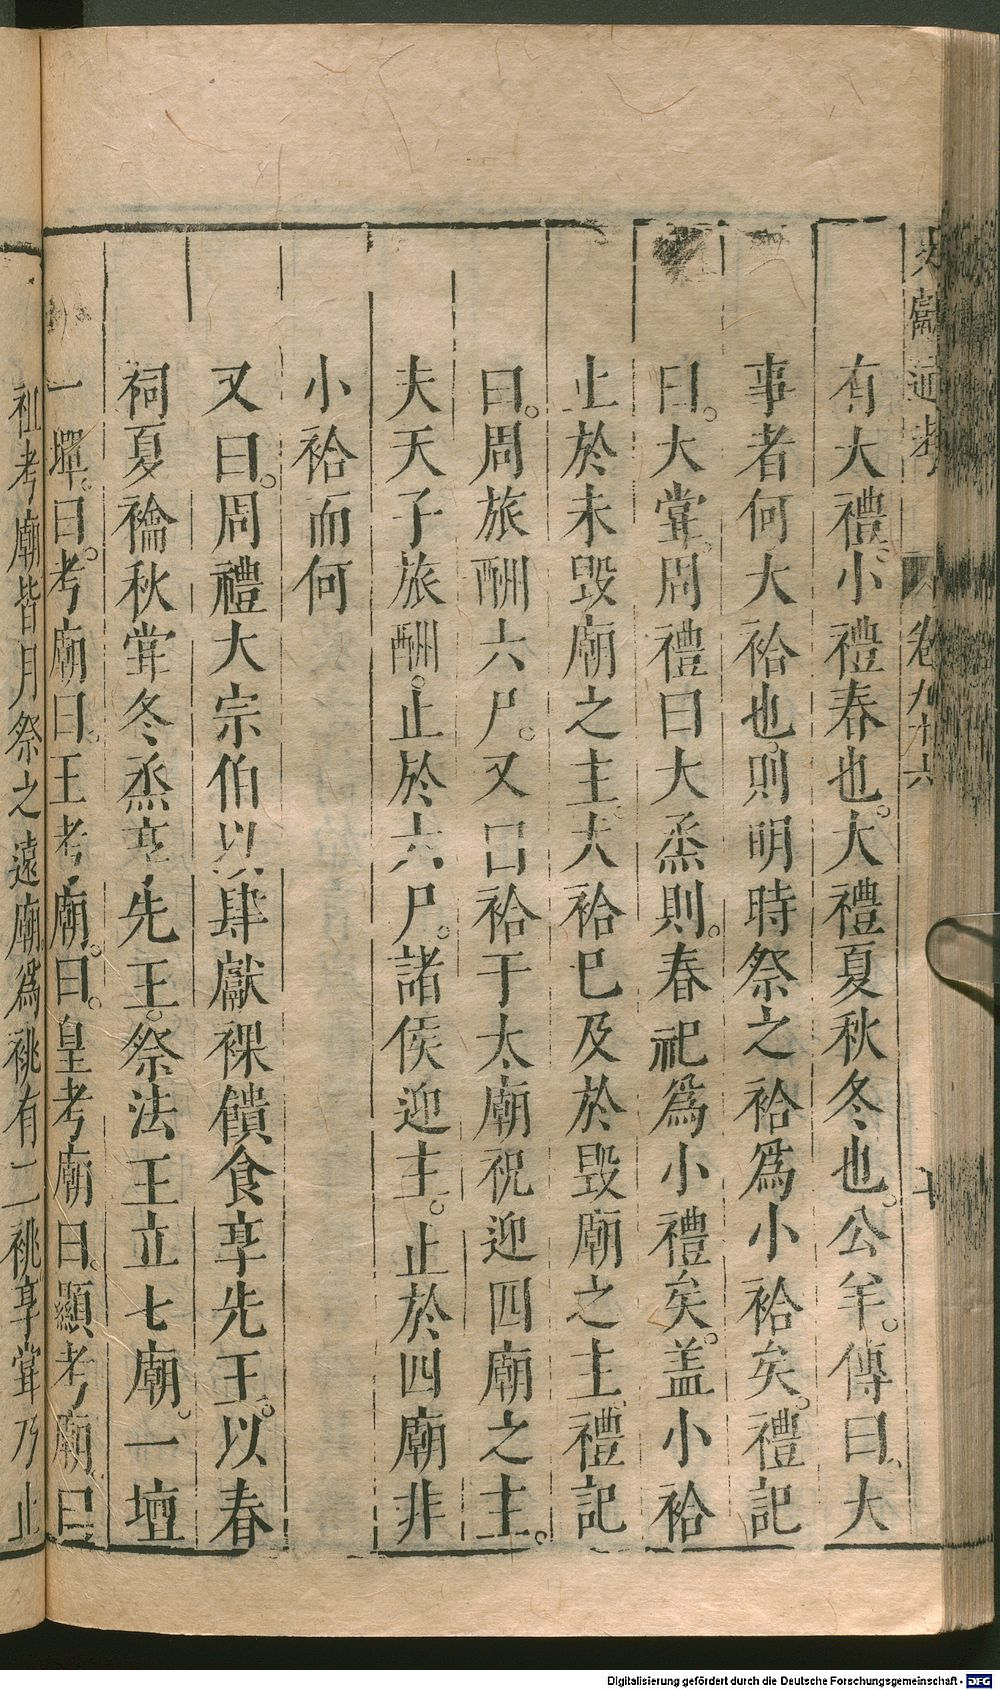 文獻通考 卷九十六 十
有大禮小禮春也大禮夏秋冬也公羊傳曰大
事者何大祫也則明時祭之祫爲小祫矣禮記
曰大甞周禮曰大烝則春祀爲小禮矣盖小祫
止於未毀廟之主大祫巳及於毀廟之主禮記
曰周旅酬六尸又曰祫于太廟祝迎四廟之主
夫天子旅酬止於六尸諸侯迎主止於四廟非
小祫而何
又曰周禮大宗伯以肆獻祼饋食享先王以春
祠夏禴秋甞冬烝享先王祭法王立七廟一壇
一墠曰考廟曰王考廟曰皇考廟曰顯考廟曰
祖考廟皆月祭之遠廟爲祧有二祧享甞乃止
Digitalisierung gefördert durch die Deutsche Forschungsgemeinschaft - DFG